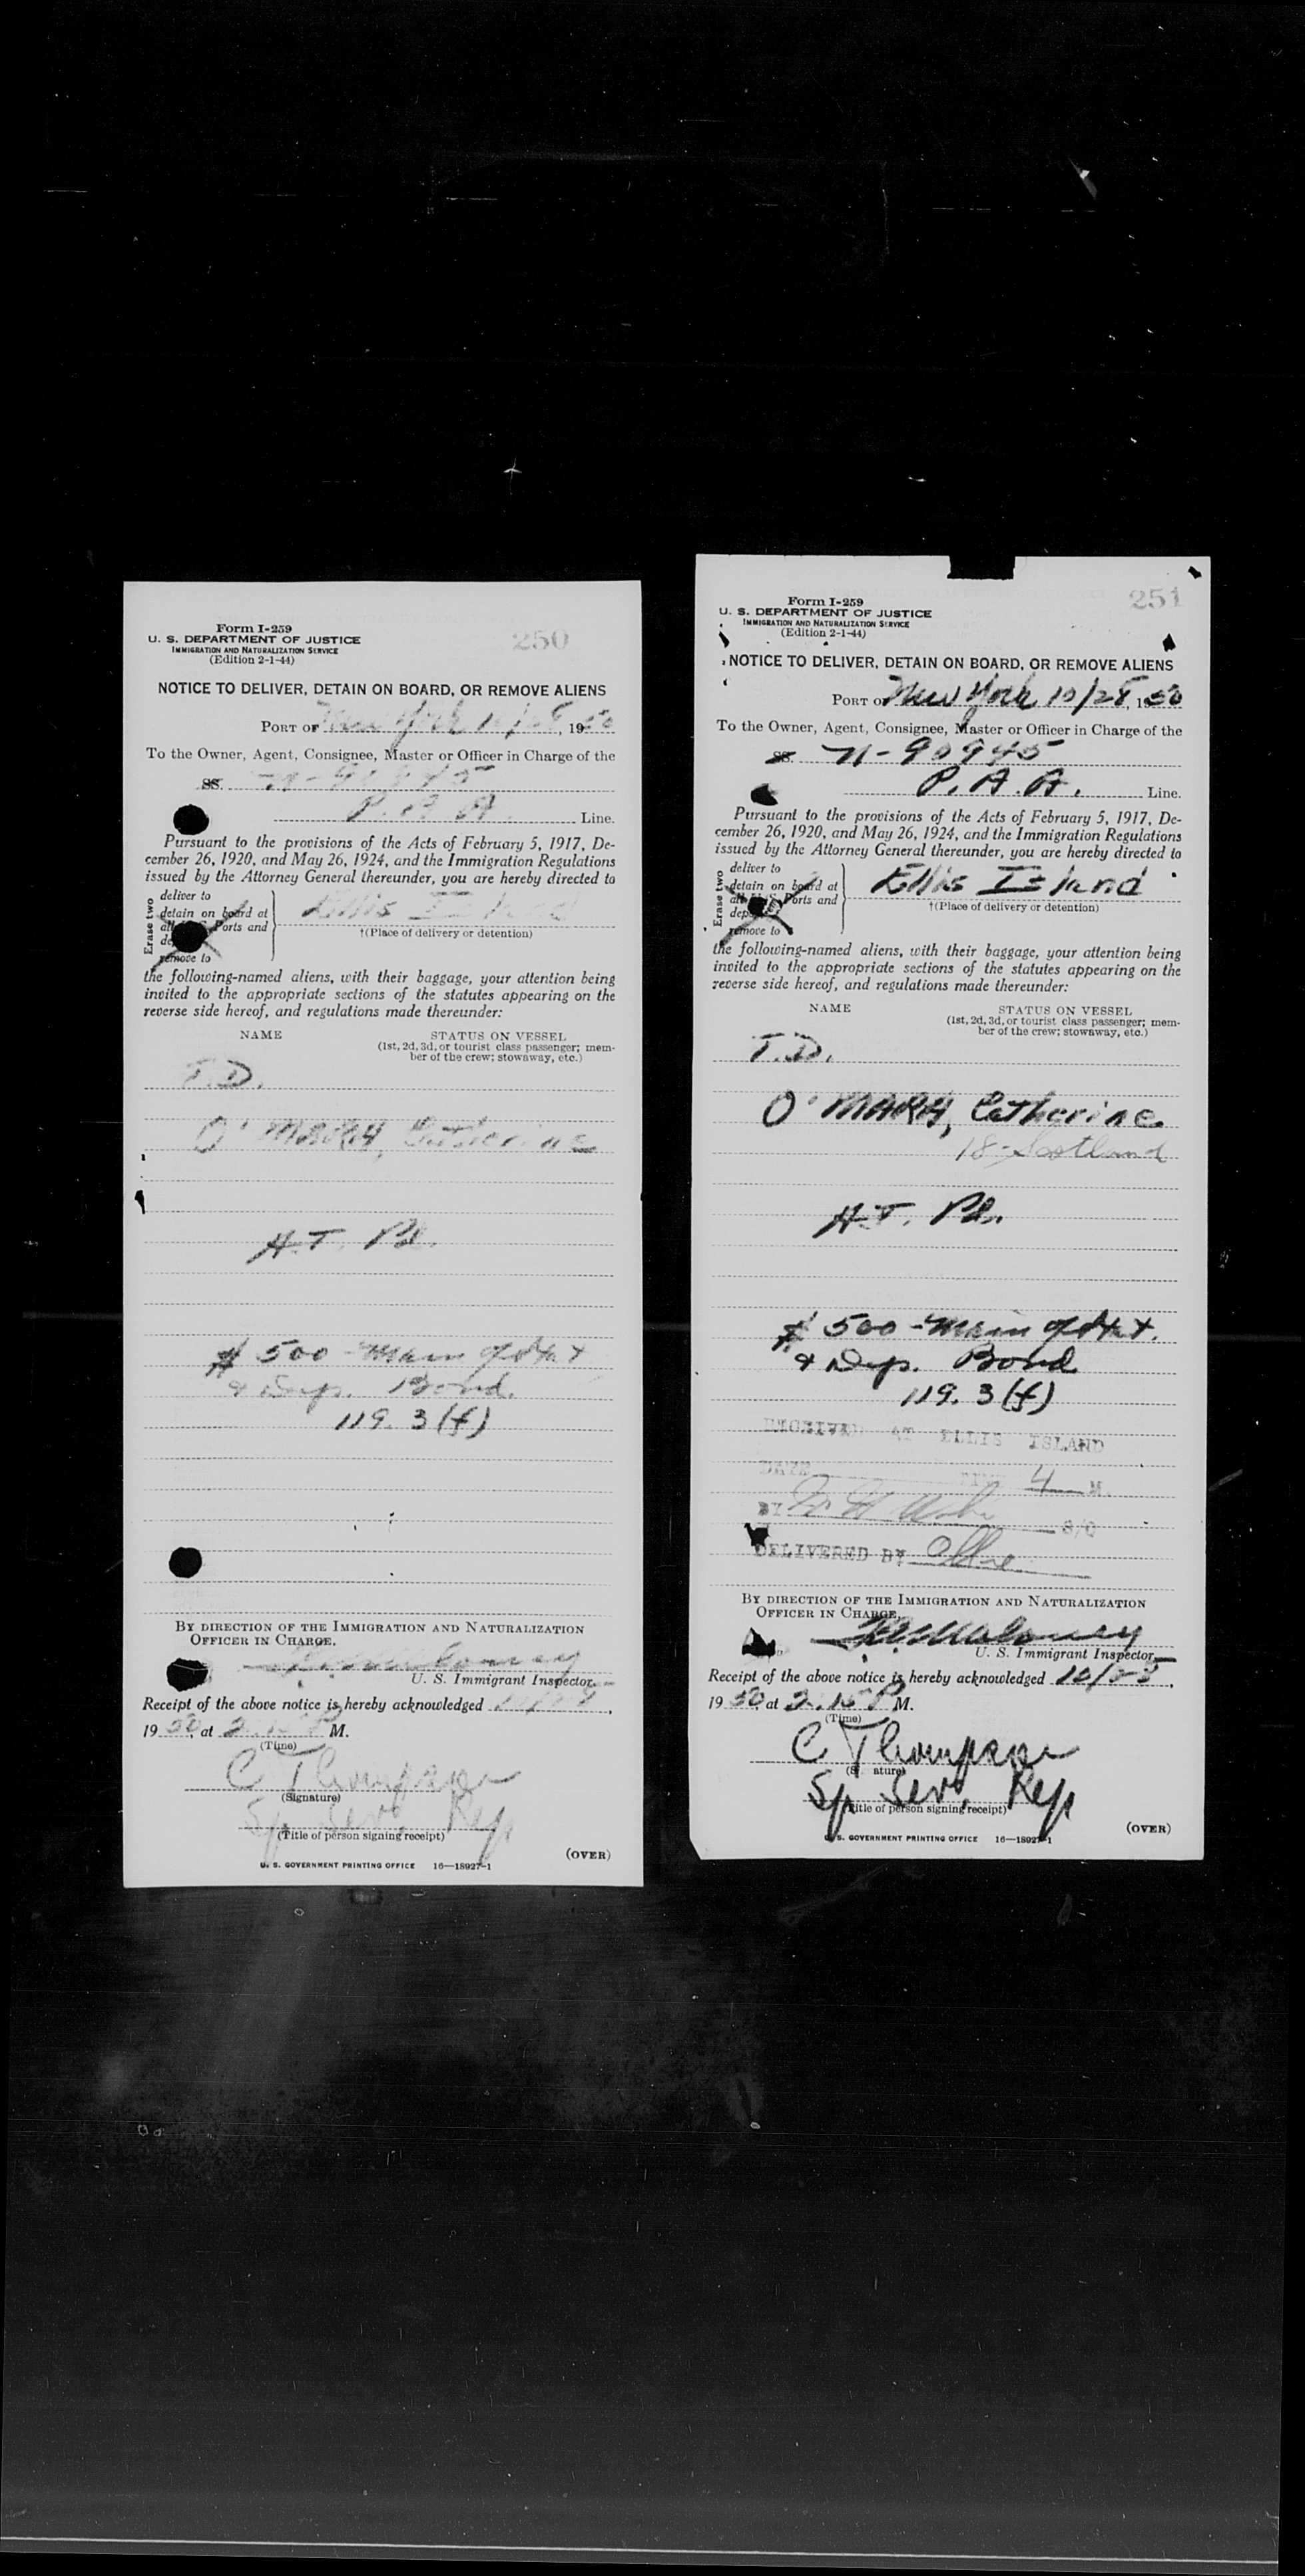 250
Form I-259
U. S. DEPARTMENT OF JUSTICE
IMMIGRATION AND NATURALIZATION SERVICE
(Edition 2-1-44)
NOTICE TO DELIVER, DETAIN ON BOARD, OR REMOVE ALIENS
PORT OF New York 10/28, 1950
To the Owner, Agent, Consignee, Master or Officer in Charge of the
SS. N-90945
P. A. A. Line.
Pursuant to the provisions of the Acts of February 5, 1917, De-
cember 26, 1920, and May 26, 1924, and the Immigration Regulations
issued by the Attorney General thereunder, you are hereby directed to
Erase two
deliver to
detain on board at
Ports and
remove to
Ellis Island
†(Place of delivery or detention)
the following-named aliens, with their baggage, your attention being
invited to the appropriate sections of the statutes appearing on the
reverse side hereof, and regulations made thereunder:
NAME STATUS ON VESSEL
(1st, 2d, 3d, or tourist class passenger; mem-
ber of the crew; stowaway, etc.)
T.D.
O'MARA, Catherine
A.T.
$ 500
& Dep. Bond.
119. 3 (f)
BY DIRECTION OF THE IMMIGRATION AND NATURALIZATION
OFFICER IN CHARGE.
U. S. Immigrant Inspector.
Receipt of the above notice is hereby acknowledged
1950, at 2.15 P M.
(Time)
C Thompson
(Signature)
Sp. Serv. Rep
(Title of person signing receipt)
(OVER)
U. S. GOVERNMENT PRINTING OFFICE 16—18927-1
251
Form I-259
U. S. DEPARTMENT OF JUSTICE
IMMIGRATION AND NATURALIZATION SERVICE
(Edition 2-1-44)
NOTICE TO DELIVER, DETAIN ON BOARD, OR REMOVE ALIENS
PORT OF New York 10/28, 1950
To the Owner, Agent, Consignee, Master or Officer in Charge of the
SS. N-90945
P. A. A. Line.
Pursuant to the provisions of the Acts of February 5, 1917, De-
cember 26, 1920, and May 26, 1924, and the Immigration Regulations
issued by the Attorney General thereunder, you are hereby directed to
Erase two
deliver to
detain on board at
Ports and
remove to
Ellis Island
†(Place of delivery or detention)
the following-named aliens, with their baggage, your attention being
invited to the appropriate sections of the statutes appearing on the
reverse side hereof, and regulations made thereunder:
NAME STATUS ON VESSEL
(1st, 2d, 3d, or tourist class passenger; mem-
ber of the crew; stowaway, etc.)
T.D.
O'MARA, Catherine
18 Scotland
A.T.
$ 500
& Dep. Bond
119. 3 (f)
RECEIVED AT ELLIS ISLAND
DATE 4 M.
BY S/O
DELIVERED BY
BY DIRECTION OF THE IMMIGRATION AND NATURALIZATION
OFFICER IN CHARGE.
U. S. Immigrant Inspector.
Receipt of the above notice is hereby acknowledged 10/28,
1950, at 2.15 P M.
(Time)
C Thompson
Sp. Serv. Rep
(Title of person signing receipt)
(OVER)
U. S. GOVERNMENT PRINTING OFFICE 16—18927-1